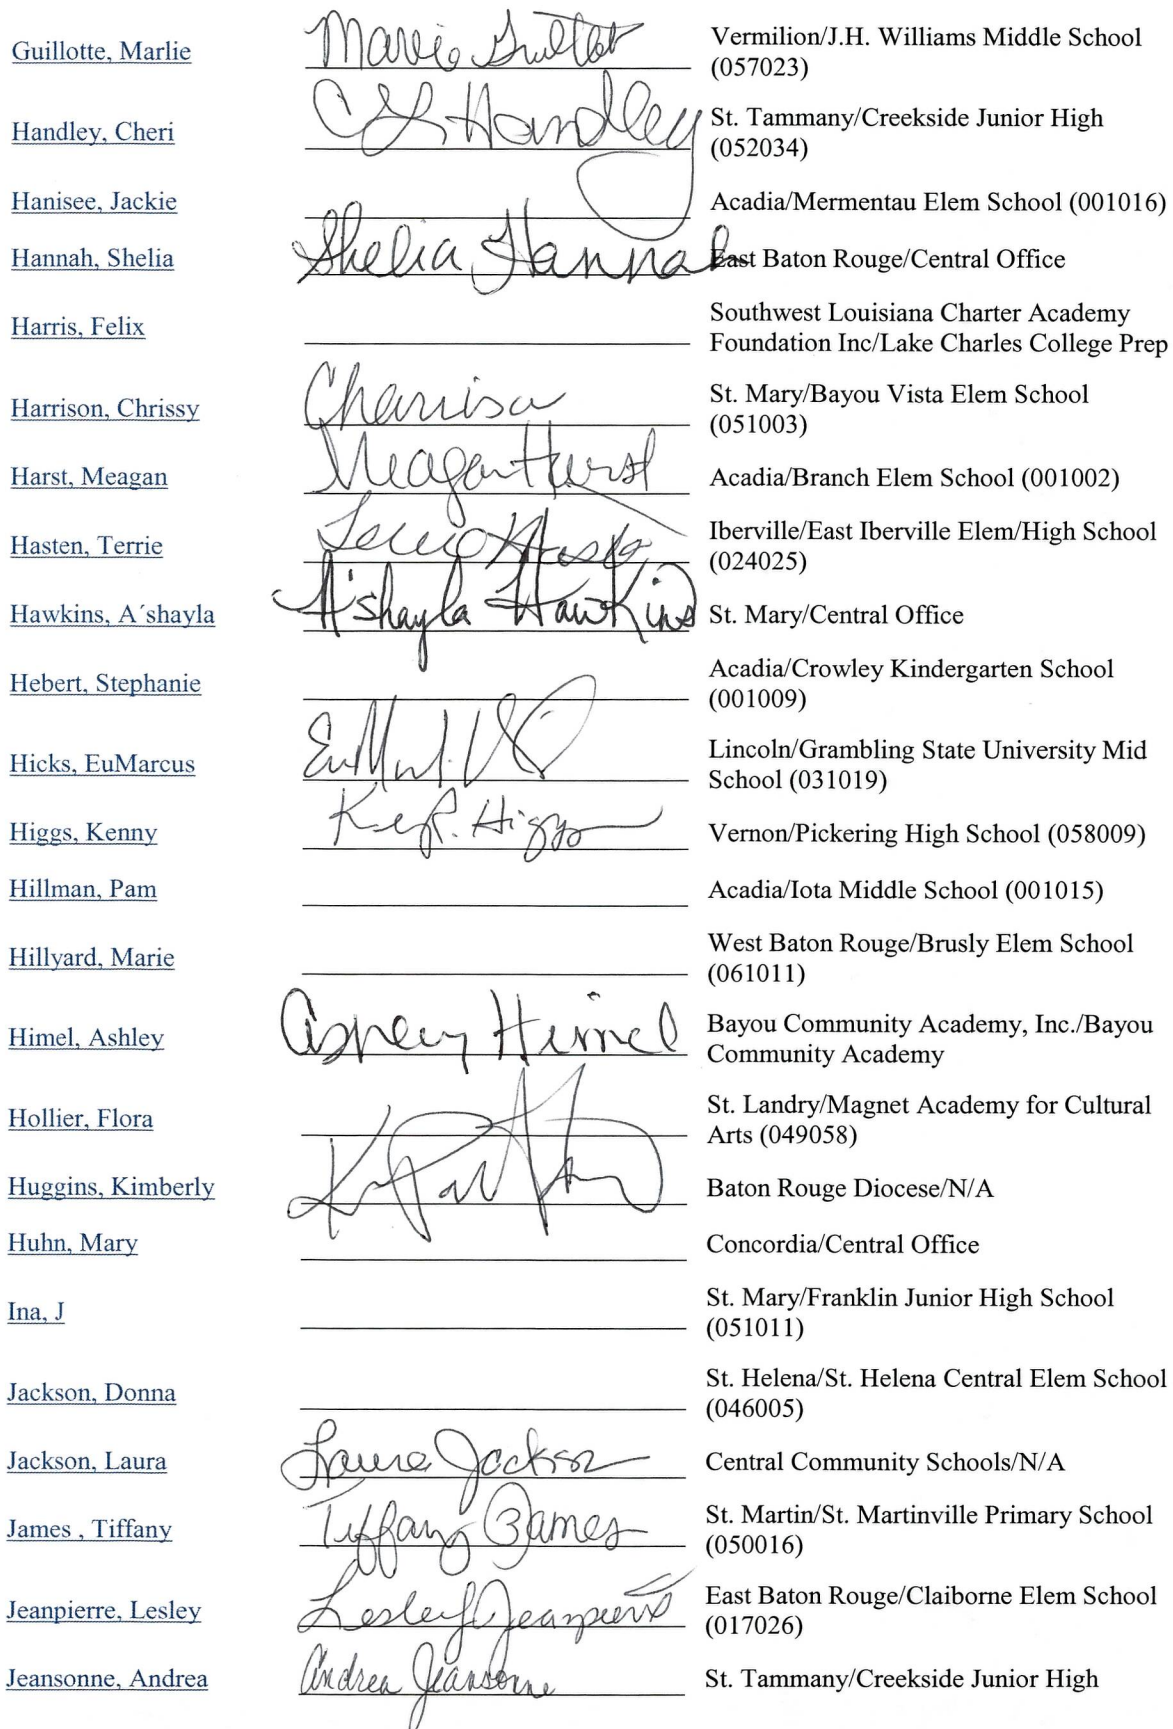 Guillotte, Marlie Marlie Vermilion/J.H. Williams Middle School
(057023)
Handley, Cheri Handley St. Tammany/Creekside Junior High
(052034)
Hanisee, Jackie Acadia/Mermentau Elem School (001016)
Hannah, Shelia Shelia Hannah East Baton Rouge/Central Office
Harris, Felix Southwest Louisiana Charter Academy
Foundation Inc/Lake Charles College Prep
Harrison, Chrissy St. Mary/Bayou Vista Elem School
(051003)
Harst, Meagan Meagan Hurst Acadia/Branch Elem School (001002)
Hasten, Terrie Iberville/East Iberville Elem/High School
(024025)
Hawkins, A´shayla A'shayla Hawkins St. Mary/Central Office
Hebert, Stephanie Acadia/Crowley Kindergarten School
(001009)
Hicks, EuMarcus Lincoln/Grambling State University Mid
School (031019)
Higgs, Kenny R. Higgs Vernon/Pickering High School (058009)
Hillman, Pam Acadia/Iota Middle School (001015)
Hillyard, Marie West Baton Rouge/Brusly Elem School
(061011)
Himel, Ashley Ashley Himel Bayou Community Academy, Inc./Bayou
Community Academy
Hollier, Flora St. Landry/Magnet Academy for Cultural
Arts (049058)
Huggins, Kimberly Baton Rouge Diocese/N/A
Huhn, Mary Concordia/Central Office
Ina, J St. Mary/Franklin Junior High School
(051011)
Jackson, Donna St. Helena/St. Helena Central Elem School
(046005)
Jackson, Laura Laura Jackson Central Community Schools/N/A
James , Tiffany Tiffany James St. Martin/St. Martinville Primary School
(050016)
Jeanpierre, Lesley Lesley Jeanpierre East Baton Rouge/Claiborne Elem School
(017026)
Jeansonne, Andrea Andrea Jeansonne St. Tammany/Creekside Junior High